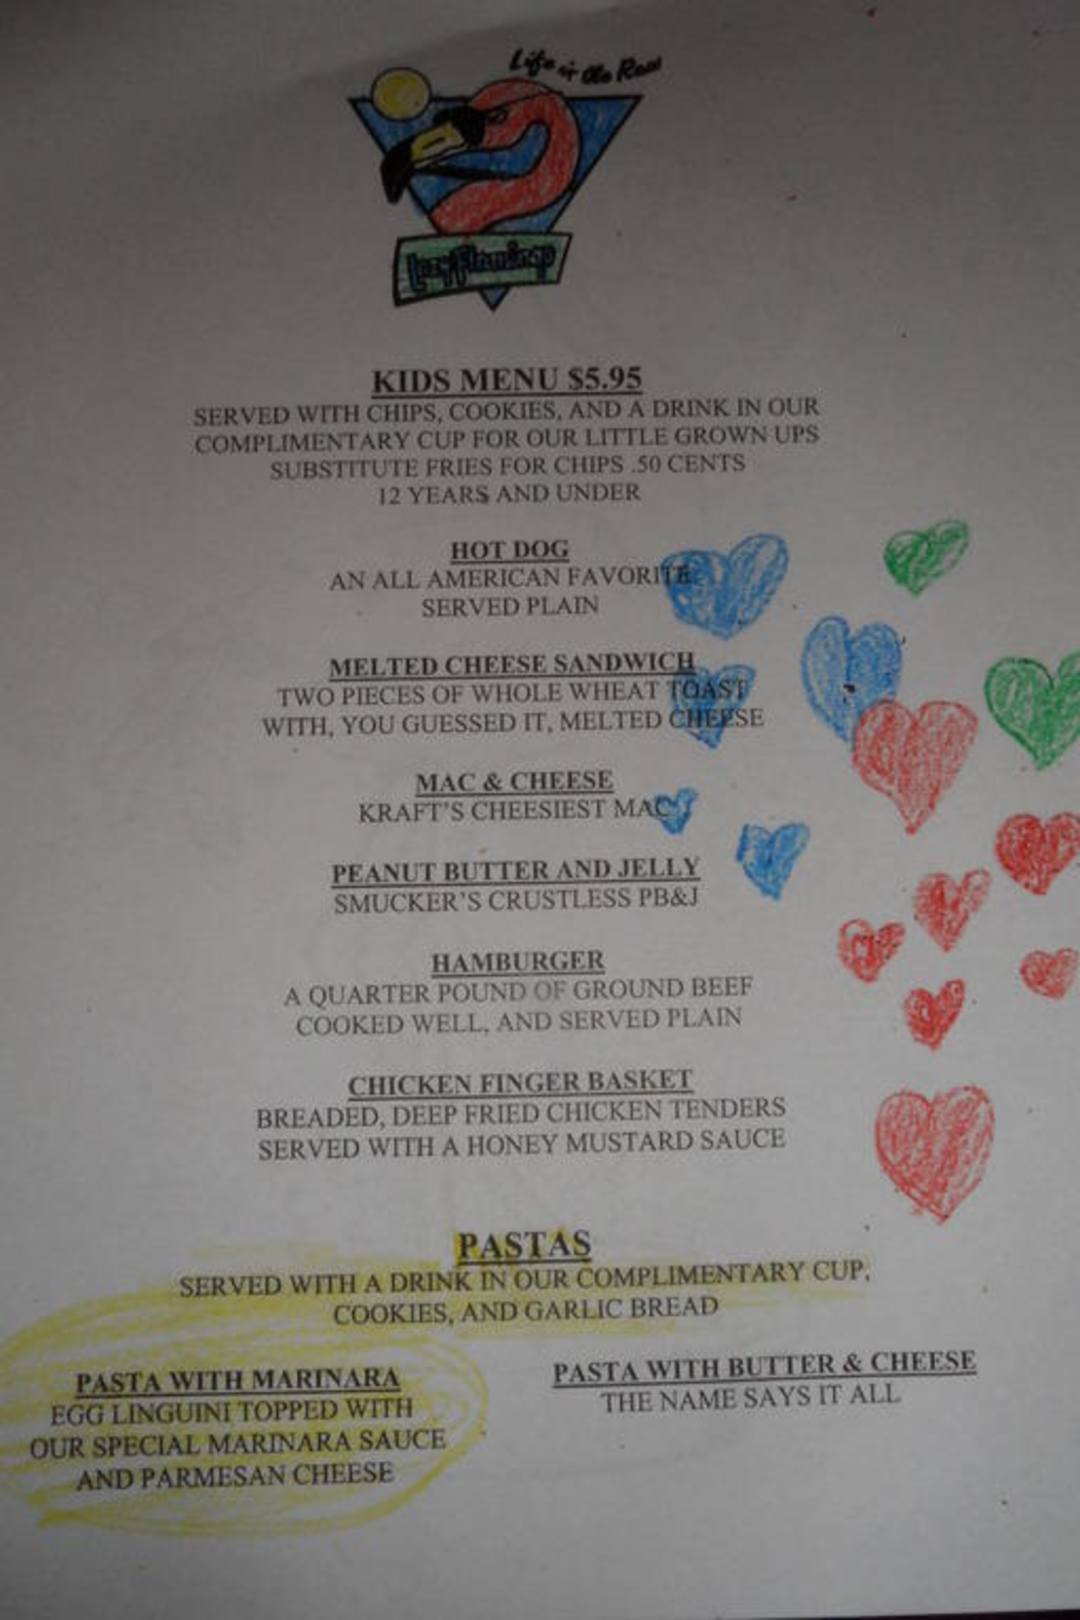 Life in the Raw
Lazy Flamingo
KIDS MENU $5.95
SERVED WITH CHIPS, COOKIES, AND A DRINK IN OUR
COMPLIMENTARY CUP FOR OUR LITTLE GROWN UPS
SUBSTITUTE FRIES FOR CHIPS .50 CENTS
12 YEARS AND UNDER
HOT DOG
AN ALL AMERICAN FAVORITE
SERVED PLAIN
MELTED CHEESE SANDWICH
TWO PIECES OF WHOLE WHEAT TOAST
WITH, YOU GUESSED IT, MELTED CHEESE
MAC & CHEESE
KRAFT'S CHEESIEST MAC
PEANUT BUTTER AND JELLY
SMUCKER'S CRUSTLESS PB&J
HAMBURGER
A QUARTER POUND OF GROUND BEEF
COOKED WELL, AND SERVED PLAIN
CHICKEN FINGER BASKET
BREADED, DEEP FRIED CHICKEN TENDERS
SERVED WITH A HONEY MUSTARD SAUCE
PASTAS
SERVED WITH A DRINK IN OUR COMPLIMENTARY CUP,
COOKIES, AND GARLIC BREAD
PASTA WITH MARINARA
EGG LINGUINI TOPPED WITH
OUR SPECIAL MARINARA SAUCE
AND PARMESAN CHEESE
PASTA WITH BUTTER & CHEESE
THE NAME SAYS IT ALL